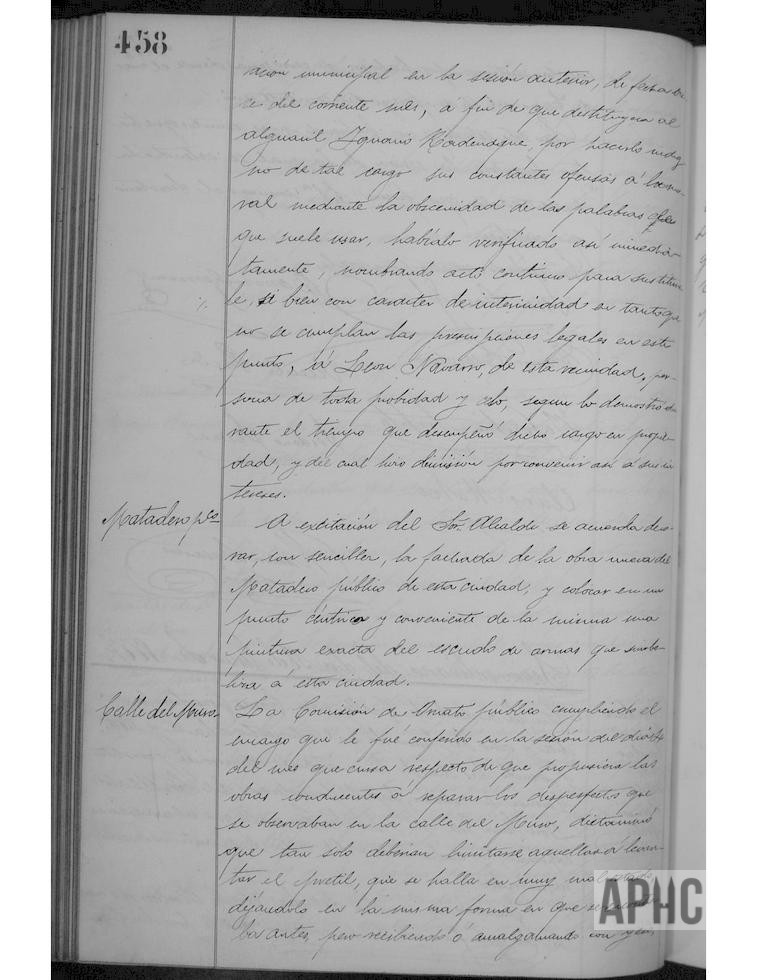 458
acion municipal en la sesión anterior, de fecha on-
ce del corriente mes, á fin de que destituyera al
alguacil Ignacio Kadenaque, por hacerlo indig
no de tal cargo sus constantes ofensas á la mo-
ral mediante la obscenidad de las palabras
que suele usar, habíalo verificado así inmedia-
tamente, nombrando acto continuo para sustituir
le, si bien con caracter de interinidad en tanto que
no se cumplan las prescripciones legales en este
punto, á Leon Navarro, de esta vecindad, per-
sona de toda probidad y celo, segun lo demostró du
rante el tiempo que desempeñó dicho cargo en propie-
dad, y del cual hizo dimisión por convenir asi á sus in
tereses.
Matadero pco
A excitación del Sor. Alcalde se acuerda deco-
rar, con sencillez, la fachada de la obra nueva del
Matadero público de esta ciudad, y colocar en un
punto céntrico y conveniente de la misma una
pintura exacta del escudo de armas que simbo-
liza á esta ciudad.
Calle del Muro
La Comisión de Ornato público cumpliendo el
encargo que le fué conferido en la sesión del dia
del mes que cursa respecto de que propusiera las
obras conducentes á reparar los desperfectos que
se observaban en la calle del Muro, dictaminó
que tan solo deberían limitarse aquellas á levan-
tar el pretil, que se halla en muy mal estado,
dejándolo en la misma forma en que se
ba antes, pero recibiendo ó amalgamando con yeso,
APHC